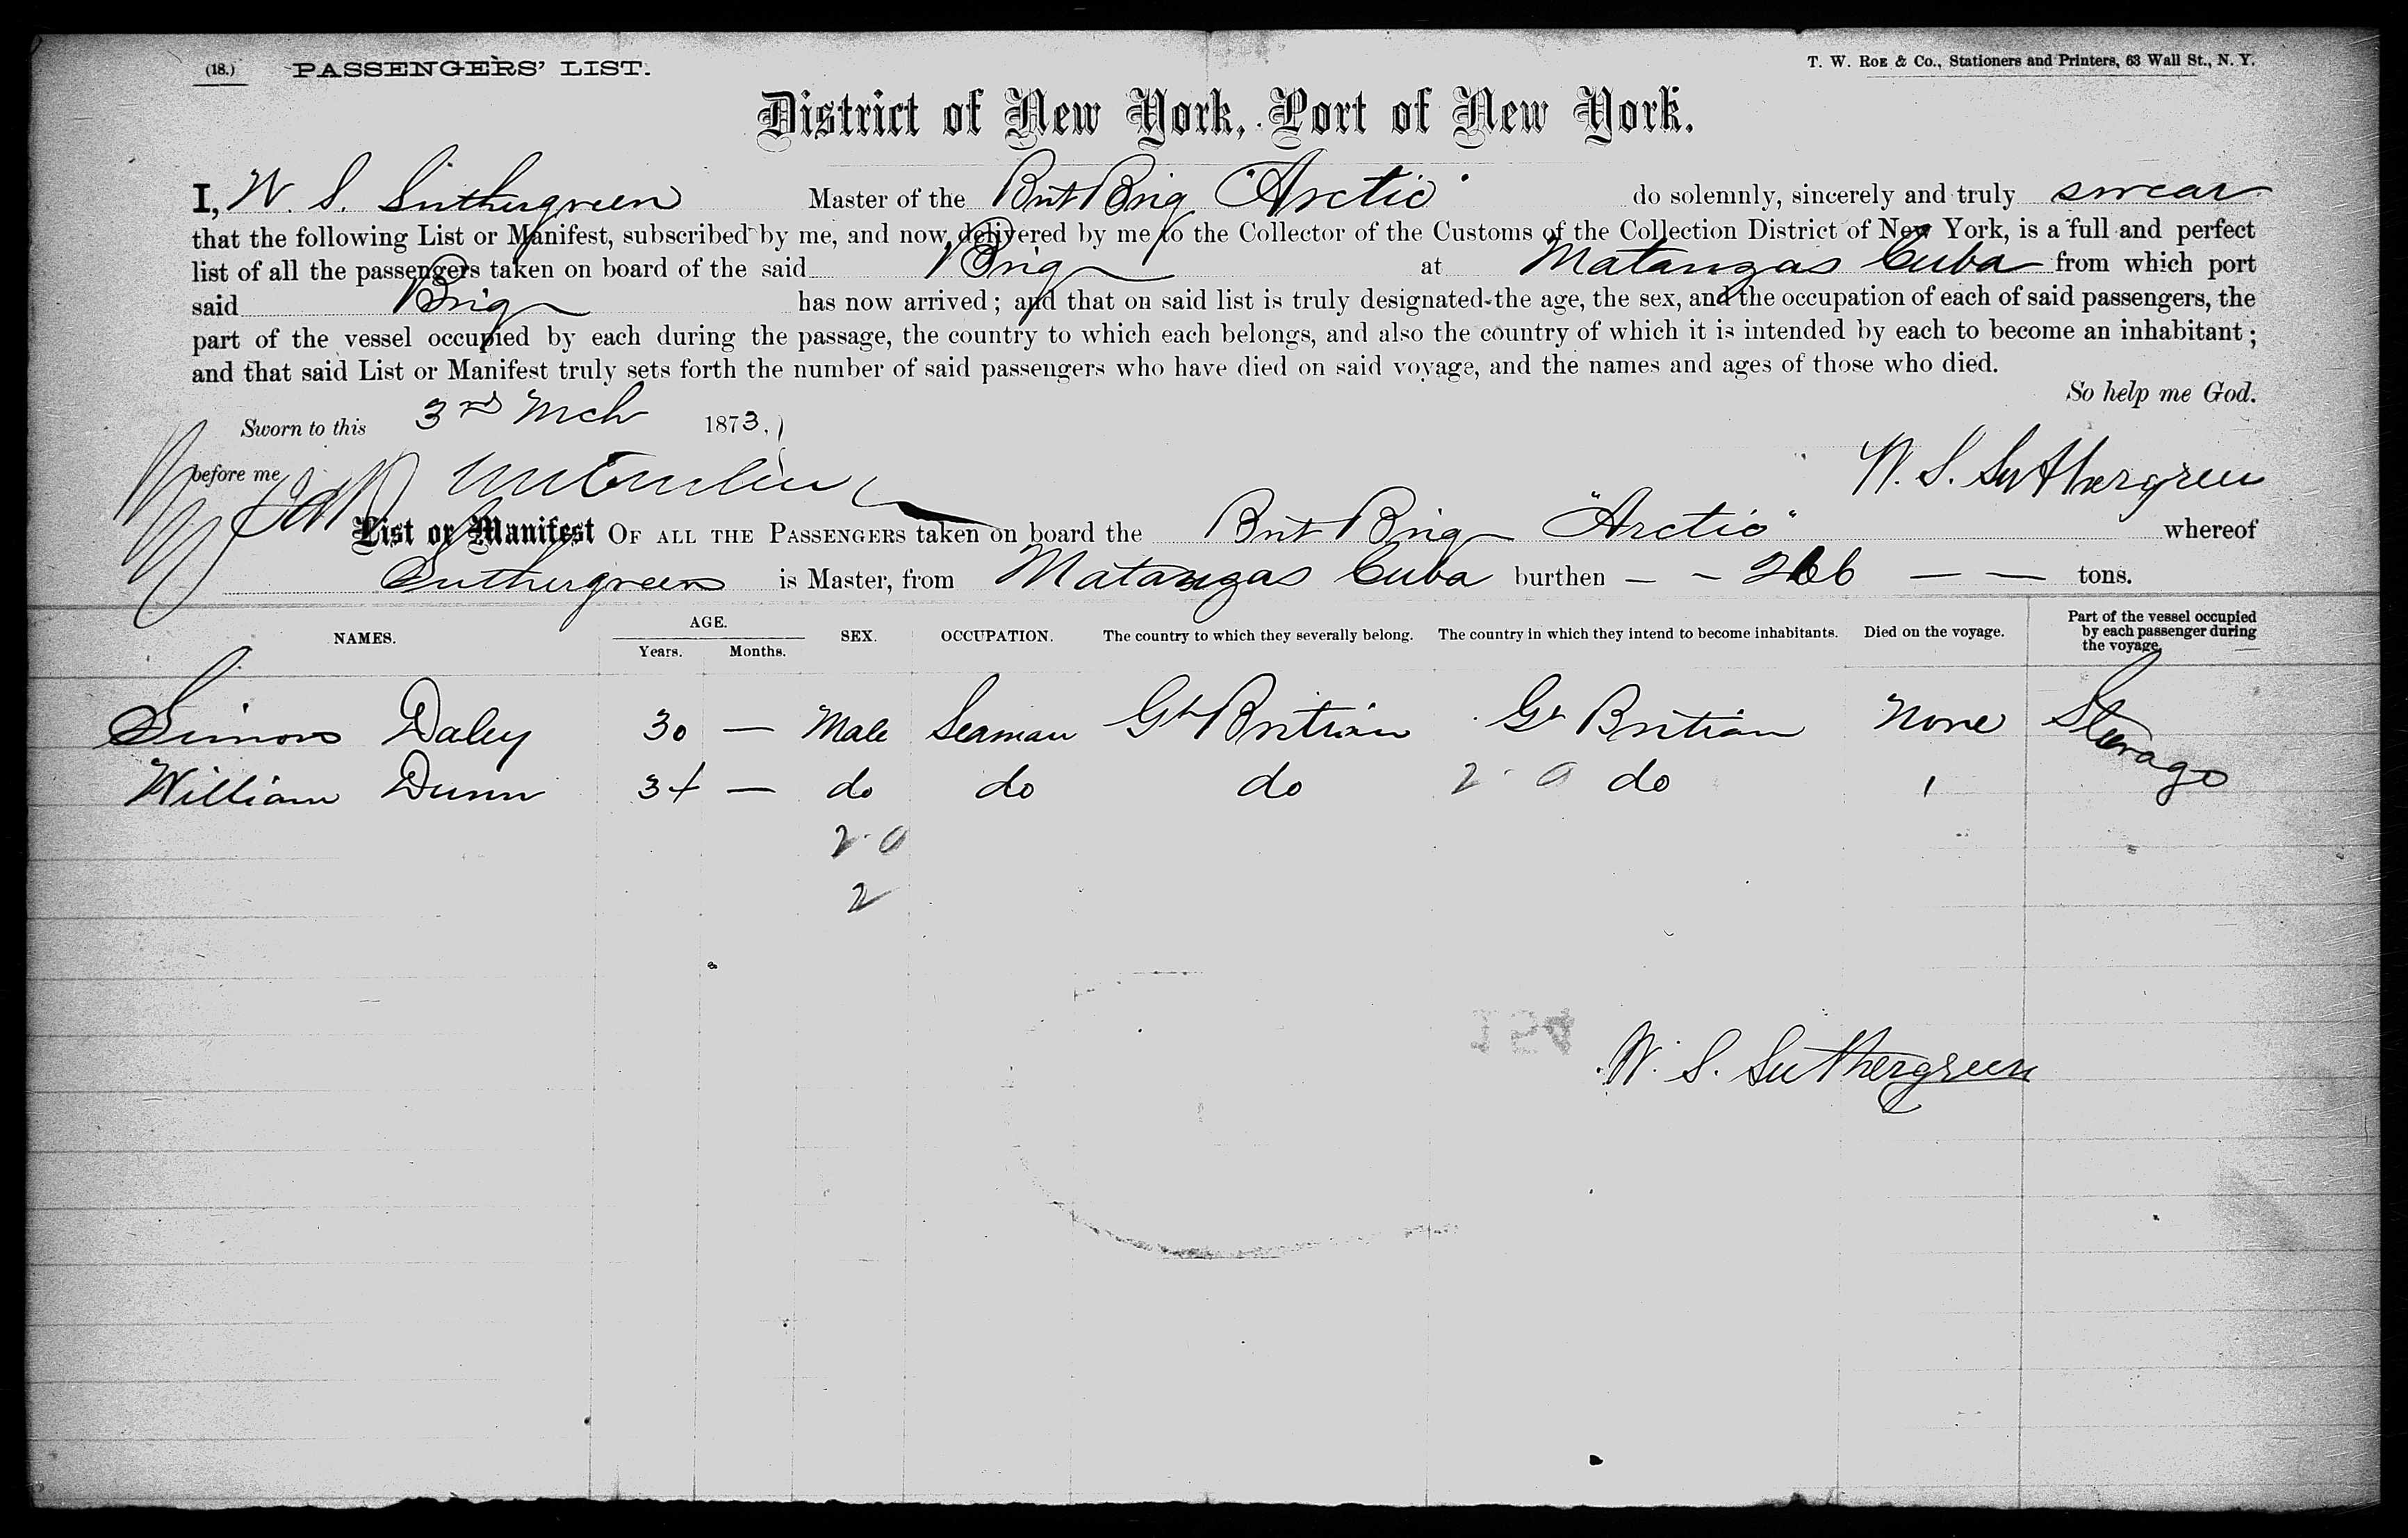 (18.) PASSENGERS' LIST. T. W. ROE & Co., Stationers and Printers, 63 Wall St., N. Y.
District of New York, Port of New York.
I, W. S. Suthergreen Master of the Brit Brig "Arctic" do solemnly, sincerely and truly swear
that the following List or Manifest, subscribed by me, and now delivered by me to the Collector of the Customs of the Collection District of New York, is a full and perfect
list of all the passengers taken on board of the said Brig at Matanzas Cuba from which port
said Brig has now arrived; and that on said list is truly designated the age, the sex, and the occupation of each of said passengers, the
part of the vessel occupied by each during the passage, the country to which each belongs, and also the country of which it is intended by each to become an inhabitant;
and that said List or Manifest truly sets forth the number of said passengers who have died on said voyage, and the names and ages of those who died.
So help me God.
Sworn to this 3rd Mch 1873.
before me W. S. Suthergreen
List or Manifest OF ALL THE PASSENGERS taken on board the Brit Brig "Arctic" whereof
Suthergreen is Master, from Matanzas Cuba burthen — — 266 — — tons.
NAMES. AGE. Years. Months. SEX. OCCUPATION. The country to which they severally belong. The country in which they intend to become inhabitants. Died on the voyage. Part of the vessel occupied by each passenger during the voyage.
Simon Daley 30 — Male Seaman Gt Britian Gt Britian None Steerage
William Dunn 34 — do do do 2 0 do
2 0
2
W. S. Suthergreen